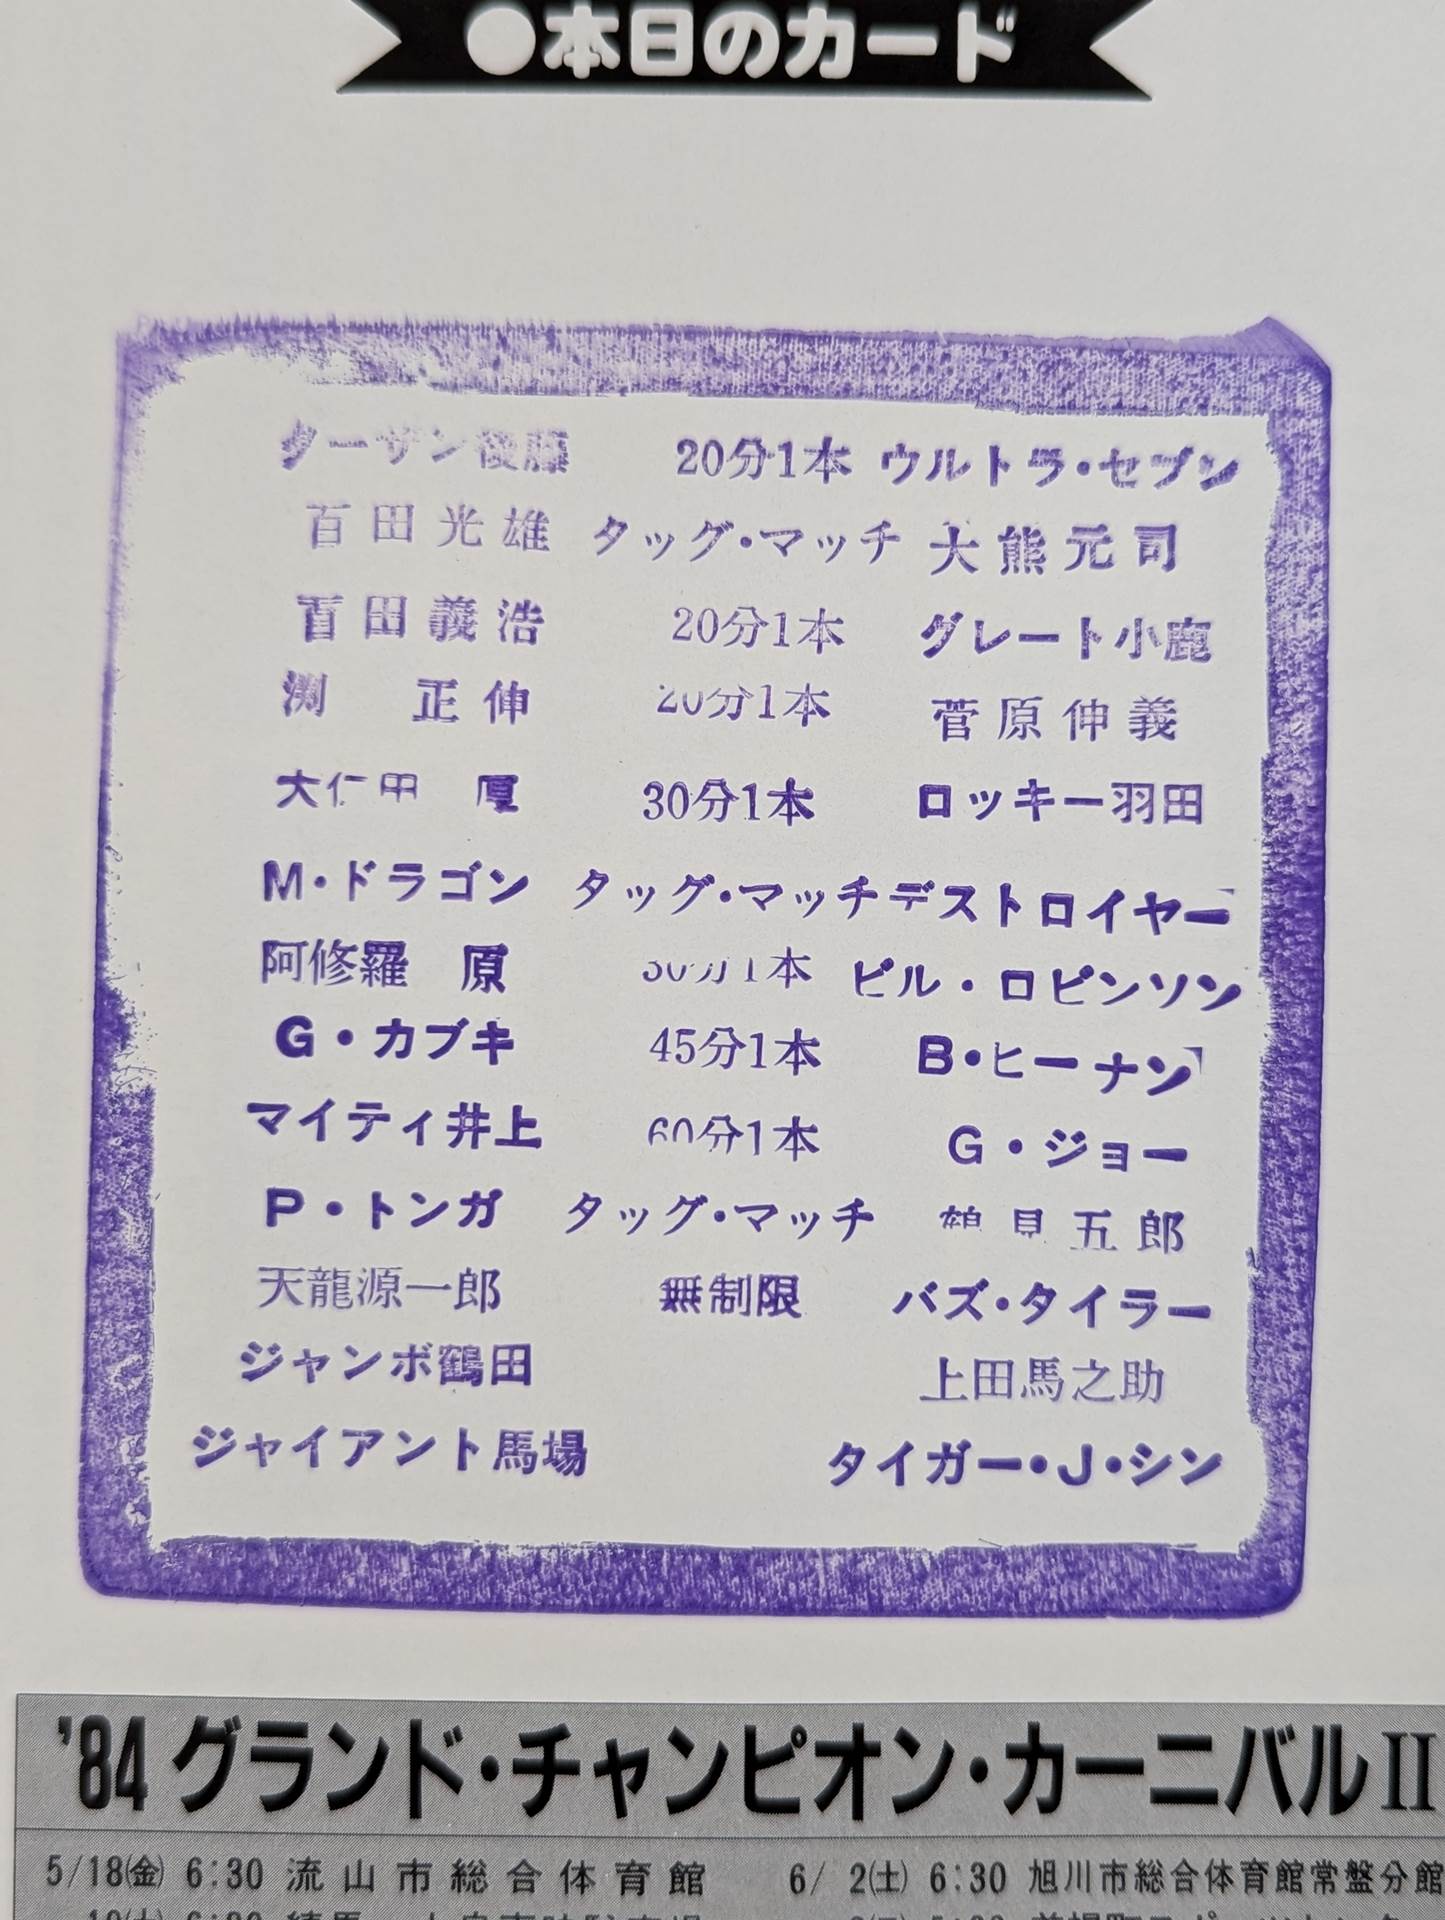 ●本日のカード
ターザン後藤 20分1本 ウルトラ・セブン
百田光雄 タッグ・マッチ 大熊元司
百田義浩 20分1本 グレート小鹿
渕 正伸 20分1本 菅原伸義
大仁田 厚 30分1本 ロッキー羽田
M・ドラゴン タッグ・マッチ デストロイヤー
阿修羅 原 30分1本 ビル・ロビンソン
G・カブキ 45分1本 B・ヒーナン
マイティ井上 60分1本 G・ジョー
P・トンガ タッグ・マッチ 鶴見五郎
天龍源一郎 無制限 バズ・タイラー
ジャンボ鶴田 上田馬之助
ジャイアント馬場 タイガー・J・シン
'84 グランド・チャンピオン・カーニバルII
5/18(金) 6:30 流山市総合体育館 6/ 2(土) 6:30 旭川市総合体育館常盤分館